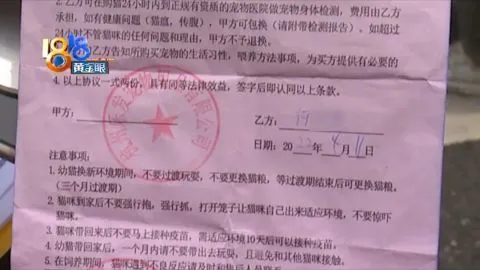 2.乙方可在购猫24小时内到正规有资质的宠物医院做宠物身体检测，费用由乙方
承担，如有健康问题（猫瘟，传腹），甲方可包换（请附带检测报告）。如超过
24小时不管猫咪的任何问题和理由，甲方不予退换。
方告知所购买宠物的生活习性，喂养方法事项，为买方提供有必要的
4.以上协议一式两份，具有同等法律效益，签字后即认同以上条款。
甲方：
乙方：
日期：2022年4月11日
注意事项：
1.幼猫换新环境期间，不要过渡玩耍，不要更换猫粮，等过渡期结束后可更换猫粮。
（三个月过渡期）
2.猫咪到家后不要强行抱，强行抓，打开笼子让猫咪自己出来适应环境，不要惊吓
猫咪。
3.猫咪带回来后不要马上接种疫苗，需适应环境10天后可以接种疫苗。
4.幼猫带回家后，一个月内请不要带出去玩耍，且避免和其他猫咪接触。
5.在饲养期间，猫咪遇到不良反应请及时和售后人员联系
1818
黄金眼
有限公司